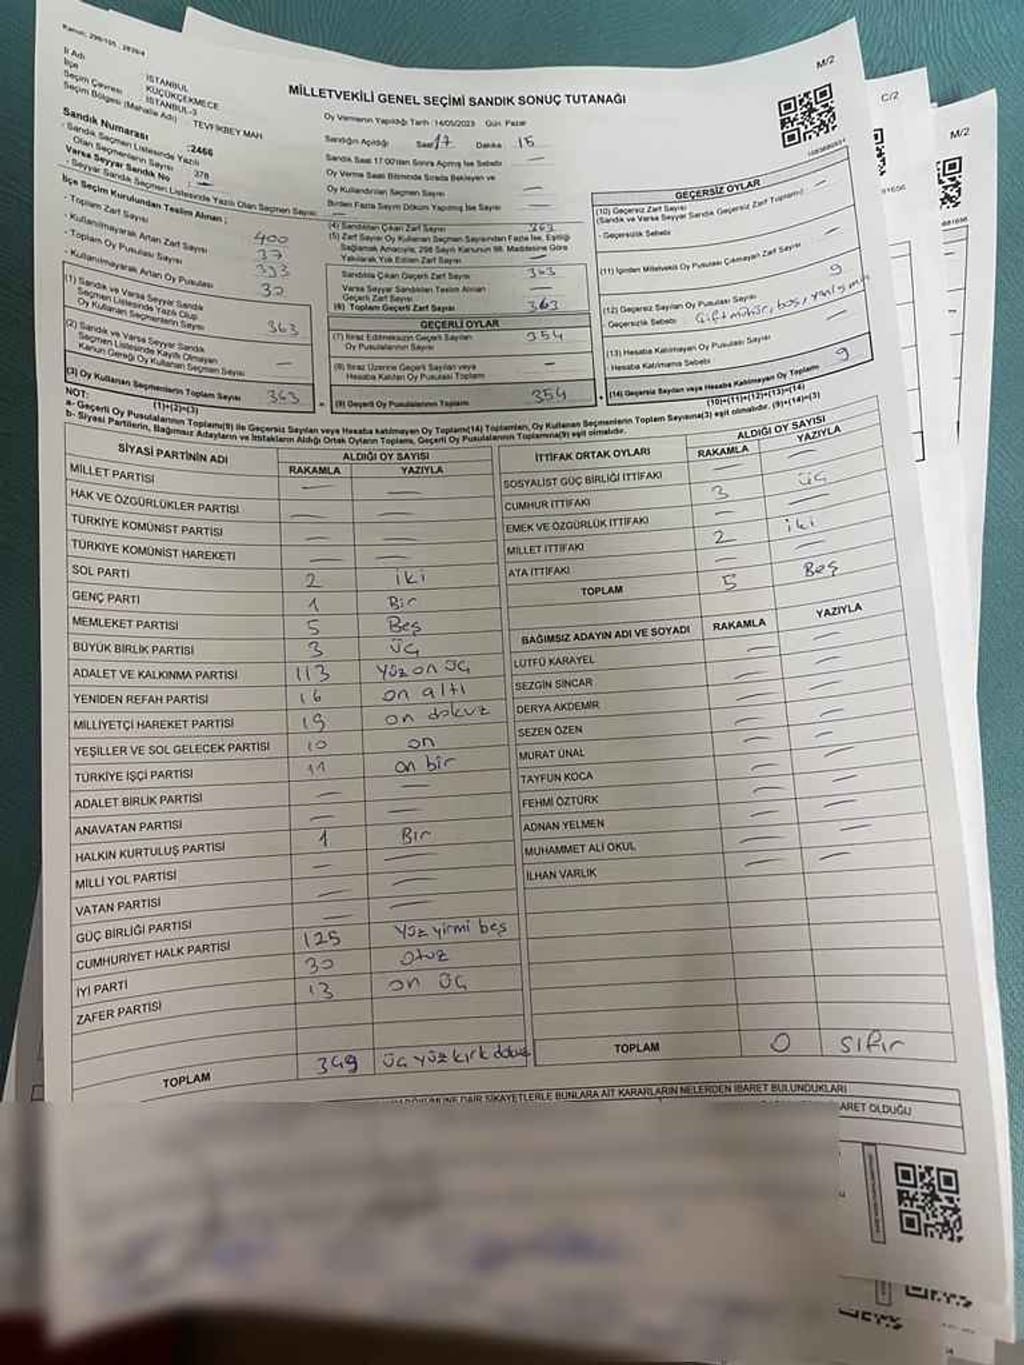 Kanun: 298/105 , 2839/4
M/2
İl Adı : İSTANBUL
İlçe : KÜÇÜKÇEKMECE
Seçim Çevresi : İSTANBUL-3
Seçim Bölgesi (Mahalle Adı) : TEVFİKBEY MAH.
MİLLETVEKİLİ GENEL SEÇİMİ SANDIK SONUÇ TUTANAĞI
Oy Vermenin Yapıldığı Tarih :14/05/2023 Gün: Pazar
Sandığın Açıldığı Saat 17 Dakika 15
Sandık Saat 17:00'den Sonra Açılmış İse Sebebi —
Oy Verme Saati Bitiminde Sırada Bekleyen ve
Oy Kullandırılan Seçmen Sayısı —
Birden Fazla Sayım Döküm Yapılmış İse Sayısı —
Sandık Numarası :2466
- Sandık Seçmen Listesinde Yazılı
Olan Seçmenlerin Sayısı : 378
Varsa Seyyar Sandık No : —
- Seyyar Sandık Seçmen Listesinde Yazılı Olan Seçmen Sayısı:
İlçe Seçim Kurulundan Teslim Alınan ;
- Toplam Zarf Sayısı 400
- Kullanılmayarak Artan Zarf Sayısı 37
- Toplam Oy Pusulası Sayısı 393
- Kullanılmayarak Artan Oy Pusulası 30
(1) Sandık ve Varsa Seyyar Sandık
Seçmen Listesinde Yazılı Olup
Oy Kullanan Seçmenlerin Sayısı 363
(2) Sandık ve Varsa Seyyar Sandık
Seçmen Listesinde Kayıtlı Olmayan
Kanun Gereği Oy Kullanan Seçmen Sayısı —
(3) Oy Kullanan Seçmenlerin Toplam Sayısı 363
(1)+(2)=(3)
(4) Sandıktan Çıkan Zarf Sayısı 363
(5) Zarf Sayısı Oy Kullanan Seçmen Sayısından Fazla İse, Eşitliği
Sağlamak Amacıyla, 298 Sayılı Kanunun 98. Maddesine Göre
Yakılarak Yok Edilen Zarf Sayısı —
Sandıkta Çıkan Geçerli Zarf Sayısı 363
Varsa Seyyar Sandıktan Teslim Alınan
Geçerli Zarf Sayısı —
(6) Toplam Geçerli Zarf Sayısı 363
GEÇERLİ OYLAR
(7) İtiraz Edilmeksizin Geçerli Sayılan
Oy Pusulalarının Sayısı 354
(8) İtiraz Üzerine Geçerli Sayılan veya
Hesaba Katılan Oy Pusulası Toplamı —
(9) Geçerli Oy Pusulalarının Toplamı 354
GEÇERSİZ OYLAR
(10) Geçersiz Zarf Sayısı
(Sandık ve Varsa Seyyar Sandık Geçersiz Zarf Toplamı) —
- Geçersizlik Sebebi:
(11) İçinden Milletvekili Oy Pusulası Çıkmayan Zarf Sayısı —
(12) Geçersiz Sayılan Oy Pusulası Sayısı 9
- Geçersizlik Sebebi: Çift mühür, boş,
(13) Hesaba Katılmayan Oy Pusulası Sayısı —
- Hesaba Katılmama Sebebi:
(14) Geçersiz Sayılan veya Hesaba Katılmayan Oy Toplamı 9
(10)+(11)+(12)+(13)=(14)
NOT:
a- Geçerli Oy Pusulalarının Toplamı(9) ile Geçersiz Sayılan veya Hesaba katılmayan Oy Toplamı(14) Toplamları, Oy Kullanan Seçmenlerin Toplam Sayısına(3) eşit olmalıdır. (9)+(14)=(3)
b- Siyasi Partilerin, Bağımsız Adayların ve İttifakların Aldığı Ortak Oyların Toplamı, Geçerli Oy Pusulalarının Toplamına(9) eşit olmalıdır.
SİYASİ PARTİNİN ADI ALDIĞI OY SAYISI
RAKAMLA YAZIYLA
MİLLET PARTİSİ — —
HAK VE ÖZGÜRLÜKLER PARTİSİ — —
TÜRKİYE KOMÜNİST PARTİSİ — —
TÜRKİYE KOMÜNİST HAREKETİ — —
SOL PARTİ 2 iki
GENÇ PARTİ 1 Bir
MEMLEKET PARTİSİ 5 Beş
BÜYÜK BİRLİK PARTİSİ 3 üç
ADALET VE KALKINMA PARTİSİ 113 yüz on üç
YENİDEN REFAH PARTİSİ 16 on altı
MİLLİYETÇİ HAREKET PARTİSİ 19 on dokuz
YEŞİLLER VE SOL GELECEK PARTİSİ 10 on
TÜRKİYE İŞÇİ PARTİSİ 11 on bir
ADALET BİRLİK PARTİSİ — —
ANAVATAN PARTİSİ — —
HALKIN KURTULUŞ PARTİSİ 1 Bir
MİLLİ YOL PARTİSİ — —
VATAN PARTİSİ — —
GÜÇ BİRLİĞİ PARTİSİ — —
CUMHURİYET HALK PARTİSİ 125 yüz yirmi beş
İYİ PARTİ 30 otuz
ZAFER PARTİSİ 13 on üç
TOPLAM 349 üç yüz kırk dokuz
İTTİFAK ORTAK OYLARI ALDIĞI OY SAYISI
RAKAMLA YAZIYLA
SOSYALİST GÜÇ BİRLİĞİ İTTİFAKI — —
CUMHUR İTTİFAKI 3 üç
EMEK VE ÖZGÜRLÜK İTTİFAKI — —
MİLLET İTTİFAKI 2 iki
ATA İTTİFAKI — —
TOPLAM 5 Beş
BAĞIMSIZ ADAYIN ADI VE SOYADI RAKAMLA YAZIYLA
LÜTFÜ KARAYEL — —
SEZGİN SİNCAR — —
DERYA AKDEMİR — —
SEZEN ÖZEN — —
MURAT ÜNAL — —
TAYFUN KOCA — —
FEHMİ ÖZTÜRK — —
ADNAN YELMEN — —
MUHAMMET ALİ OKUL — —
İLHAN VARLIK — —
TOPLAM 0 sıfır
DÖKÜMÜNE DAİR ŞİKAYETLERLE BUNLARA AİT KARARLARIN NELERDEN İBARET BULUNDUKLARI
İBARET OLDUĞU
C/2
M/2